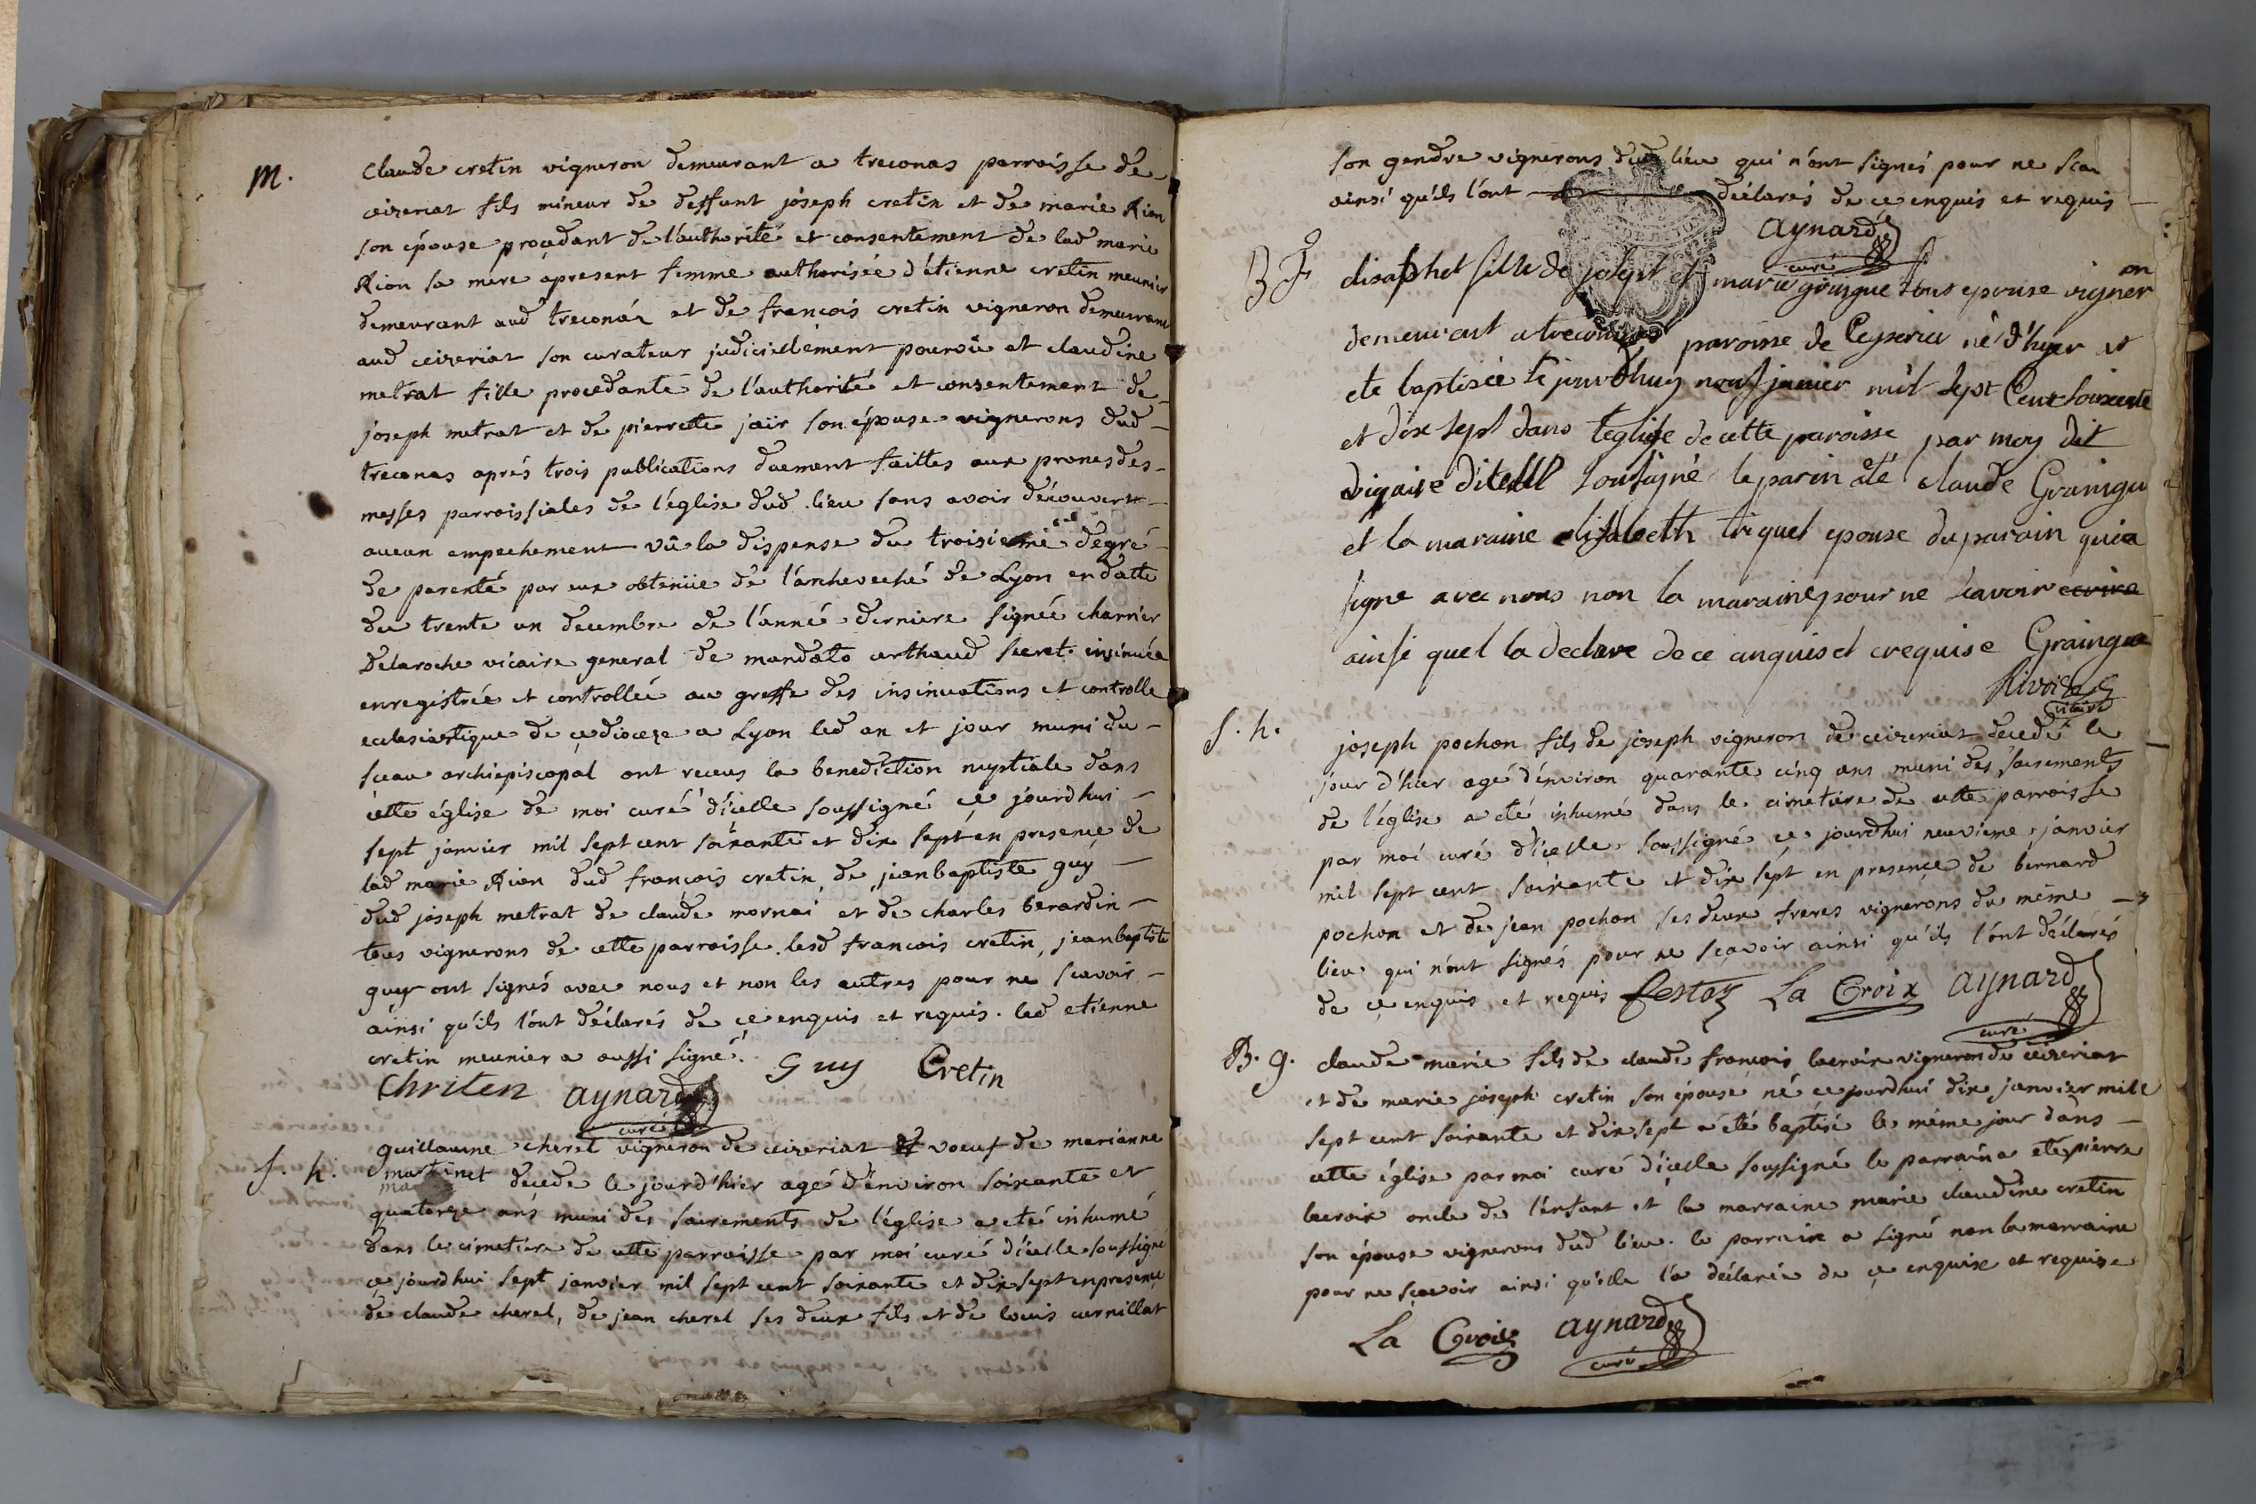 M.
Claude cretin vigneron demeurant a treconas parroisse de
ceizeriat fils mineur de deffunt joseph cretin et de marie Rion
son épouse procedant de l'authorité et consentement de lad marie
Rion sa mere apresent femme authorisée d'étienne cretin meunier
demeurant aud treconas et de francois cretin vigneron demeurant
aud ceizeriat son curateur judiciellement pourvû et claudine
metrat fille procedante de l'authorité et consentement de
joseph metrat et de pierrette jair son épouse vignerons dud
treconas aprés trois publications duement faittes aux prones des
messes parroissiales de l'église dud lieu sans avoir découvert
aucun empechement vû la dispense du troisieme degré
de parenté par eux obtenüe de l'archeveché de Lyon en datte
du trente un decembre de l'anné derniere signée charrier
Delaroche vicaire general de mandato arthaud secret. insinuée
enregistrée et controllée au greffe des insinuations et controlle
eclesiastique de ce dioceze a Lyon led an et jour muni du
sceau archiepiscopal ont receus la benediction nuptiale dans
cette église de moi curé d'icelle soussigné ce jourdhui
sept janvier mil sept cent soixante et dix sept en presence de
lad marie Rion dud francois cretin, de jean baptiste guy
dud joseph metrat de claude mornai et de charles berardin
tous vignerons de cette parroisse. lesd francois cretin, jean baptiste
guy ont signés avec nous et non les autres pour ne scavoir
ainsi qu'ils l'ont déclarés de ce enquis et requis. led etienne
cretin meunier a aussi signé.
Guy Cretin
Chriten aynard
curé
S. h.
guillaume cherel vigneron de ceizeriat et voeuf de marianne
martinet décedé le jourd'hier agé d'environ soixante et
quatorze ans muni des sacrements de l'église a eté inhumé
dans le cimetiere de cette parroisse par moi curé d'icelle soussigné
ce jourdhui sept janvier mil sept cent soixante et dix sept en presence
de claude cherel, de jean cherel ses deux fils et de louis curnillat
son gendre vignerons dud lieu qui n'ont signés pour ne scau
ainsi qu'ils l'ont déclarés de ce enquis et requis
aynard
curé
B F
elisabhet fille de joseph et marie graingue son epouse vigneron
demeurant a treconas paroisse de Ceyseria né d'hyer et
ete baptisée ce jourdhuy neuf janvier mil sept Cent soixente
et dix sept dans l'eglise de cette paroisse par moy dit
vigaire soussigné le parin eté claude Graingu
et la maraine elisabeth triquet epouse du parain qui a
signe avec nous non la maraine pour ne scavoir ecrire
ainsi quel la declare de ce anquis et crequise Graingue
Rivoire
vicaire
S. h.
joseph pochon fils de joseph vigneron de ceizeriat décedé le
jour d'hier agé d'environ quarante cinq ans muni des sacrements
de l'église a eté inhumé dans le cimetiere de cette parroisse
par moi curé d'icelle soussigné ce jourdhui neuvieme janvier
mil sept cent soixante et dix sept en presence de bernard
pochon et de jean pochon ses deux freres vignerons du même
lieu qui n'ont signés pour ne sçavoir ainsi qu'ils l'ont déclarés
de ce enquis et requis festaz La Croix aynard
curé
B. g.
claude marie fils de claude francois lacroix vigneron de ceizeriat
et de marie joseph cretin son épouse né ce jourdhui dix janvier mile
sept cent soixante et dix sept a eté baptisé le même jour dans
cette église par moi curé d'icelle soussigné le parrain a eté pierre
lacroix oncle de l'enfant et la marraine marie claudine cretin
son épouse vignerons dud lieu. le parrain a signé non la marraine
pour ne sçavoir ainsi qu'elle l'a déclarée de ce enquise et requise
La Croix aynard
curé